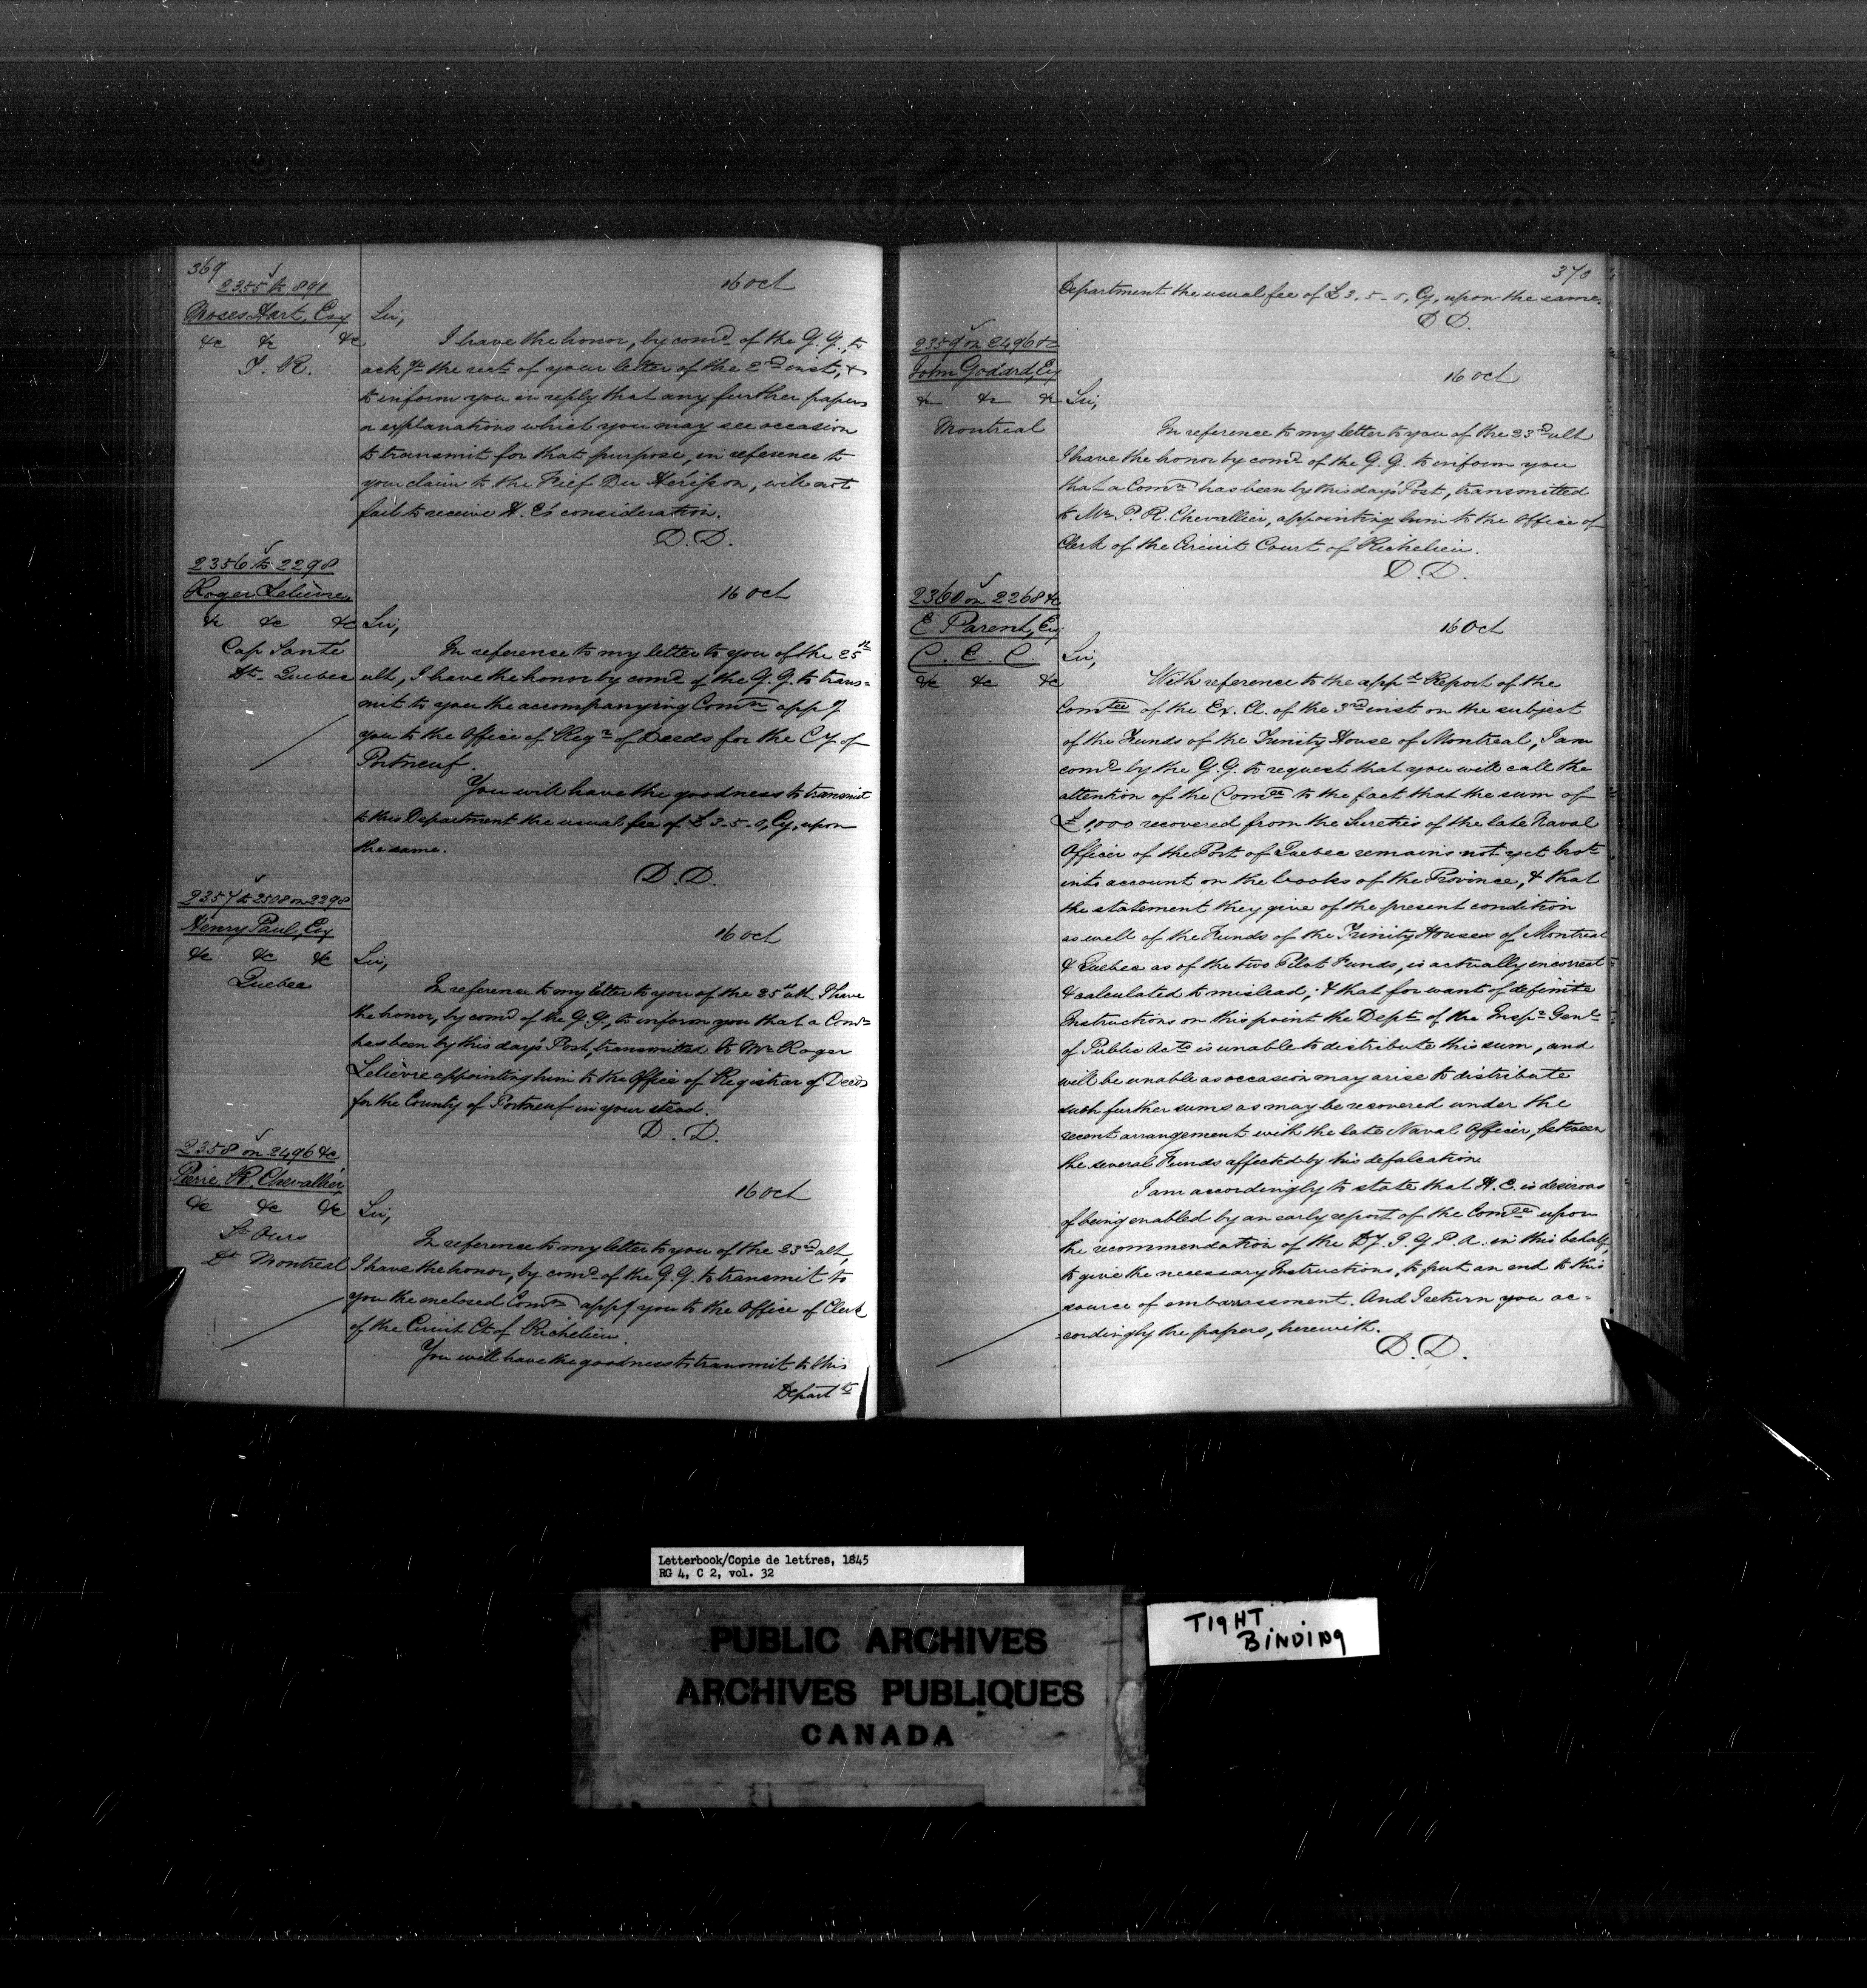 369
2355 to 891
Moses Hart, Esq
&c &c &c
T. R.
16 Oct
Sir,
I have the honor, by comd of the G. G., to
ackge the rect of your letter of the 2nd inst, &
to inform you in reply that any further papers
or explanations which you may see occasion
to transmit for that purpose, in reference to
your claim to the Fief Du Hérisson, will not
fail to receive H. E's consideration.
D. D.
2356 to 2298
Roger Lelièvre,
&c &c &c
Cap Santé
Dt. Quebec
16 Oct
Sir,
In reference to my letter to you of the 25th
ult, I have the honor by comd of the G. G. to trans-
mit to you the accompanying Comn appg
you to the Office of Regr of Deeds for the Cy of
Portneuf.
You will have the goodness to transmit
to this Department the usual fee of £3-5-0, Cy, upon
the same.
D. D.
2357 to 2508 on 2298
Henry Paul, Esq
&c &c &c
Quebec
16 Oct
Sir,
In reference to my letter to you of the 25th ult I have
the honor, by comd of the G. G., to inform you that a Comn
has been by this day's Post, transmitted to Mr Roger
Lelièvre appointing him to the Office of Registrar of Deeds
for the County of Portneuf in your stead.
D. D.
2358 on 2496 &c
Pierre R. Chevallier,
&c &c &c
St Ours
Dt Montreal
16 Oct
Sir,
In reference to my letter to you of the 23rd ult,
I have the honor, by comd of the G. G. to transmit to
you the enclosed Comn appg you to the Office of Clerk
of the Circuit Ct of Richelieu.
You will have the goodness to transmit to this
Departt
370
Department the usual fee of £3-5-0, Cy, upon the same.
D D.
2359 on 2496 &c
John Godard, Esq
&c &c &c
Montreal
16 Oct
Sir,
In reference to my letter to you of the 23rd ult
I have the honor by comd of the G. G. to inform you
that a Comn has been by this day's Post, transmitted
to Mr P. R. Chevallier, appointing him to the Office of
Clerk of the Circuit Court of Richelieu.
D. D.
2360 on 2268 &c
E Parent, Esq
C. E. C.
&c &c &c
16 Oct
Sir,
With reference to the appd Report of the
Comtee of the Ex. Cl. of the 3rd inst on the subject
of the Funds of the Trinity House of Montreal, I am
comd by the G. G. to request that you will call the
attention of the Comee to the fact that the sum of
£1,000 recovered from the Sureties of the late Naval
Officer of the Port of Quebec remains not yet brot
into account on the books of the Province, & that
the statement they give of the present condition
as well of the Funds of the Trinity Houses of Montreal
& Quebec as of the two Pilot Funds, is actually incorrect
& calculated to mislead; & that for want of definite
Instructions on this point the Dept of the Inspr Genl
of Public Acts is unable to distribute this sum, and
will be unable as occasion may arise to distribute
such further sums as may be recovered under the
recent arrangement with the late Naval Officer, between
the several Funds affected by his defalcation.
I am accordingly to state that H. E. is desirous
of being enabled by an early report of the Comee upon
the recommendation of the Dy. I. G. P. A. in this behalf,
to give the necessary Instructions, to put an end to this
source of embarrassment. And I return you ac-
-cordingly the papers, herewith.
D. D.
Letterbook/Copie de lettres, 1845
RG 4, C 2, vol. 32
PUBLIC ARCHIVES
ARCHIVES PUBLIQUES
CANADA
TIGHT
BINDING